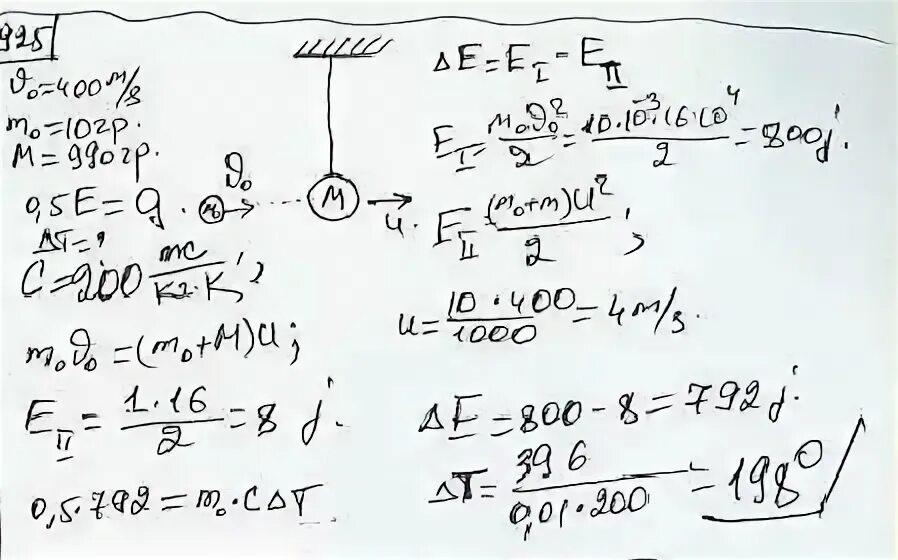 925
ϑ₀=400 м/s
m₀=10гр.
M=990гр.
0,5E=Q.
ΔT=?
m₀ ϑ₀ M u.
C=200
m₀ϑ₀=(m₀+M)u;
E_II = 1·16/2 = 8 j.
0,5·792=m₀·CΔT
ΔE=E_I-E_II
E_I=m₀ϑ₀²/2=10·10⁻³·16·10⁴/2=800j.
E_II (m₀+m)u²/2;
u=10·400/1000=4m/s.
ΔE=800-8=792j.
ΔT=396/0,01·200=198⁰